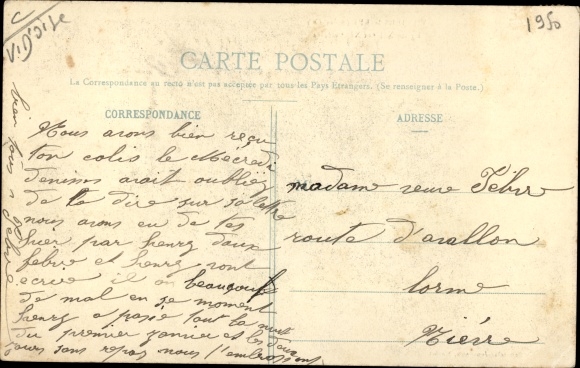 1950
CARTE POSTALE
La Correspondance au recto n'est pas acceptée par tous les Pays Etrangers. (Se renseigner à la Poste.)
CORRESPONDANCE
Nous avons bien reçu
ton colis le Mécredi
denise avait oublièz
de te dire sur sa lettre
nous avons eu de tes
hier par henry
febre et henry vont
ecrire il on beaucoup
de mal en se moment
henry a pasé tout la nuit
du premier janvier et les deux
jours sans repas nous t'embrassons
bien tous
ADRESSE
madame veuve Febvre
route d'avallon
lorme
Nièvre